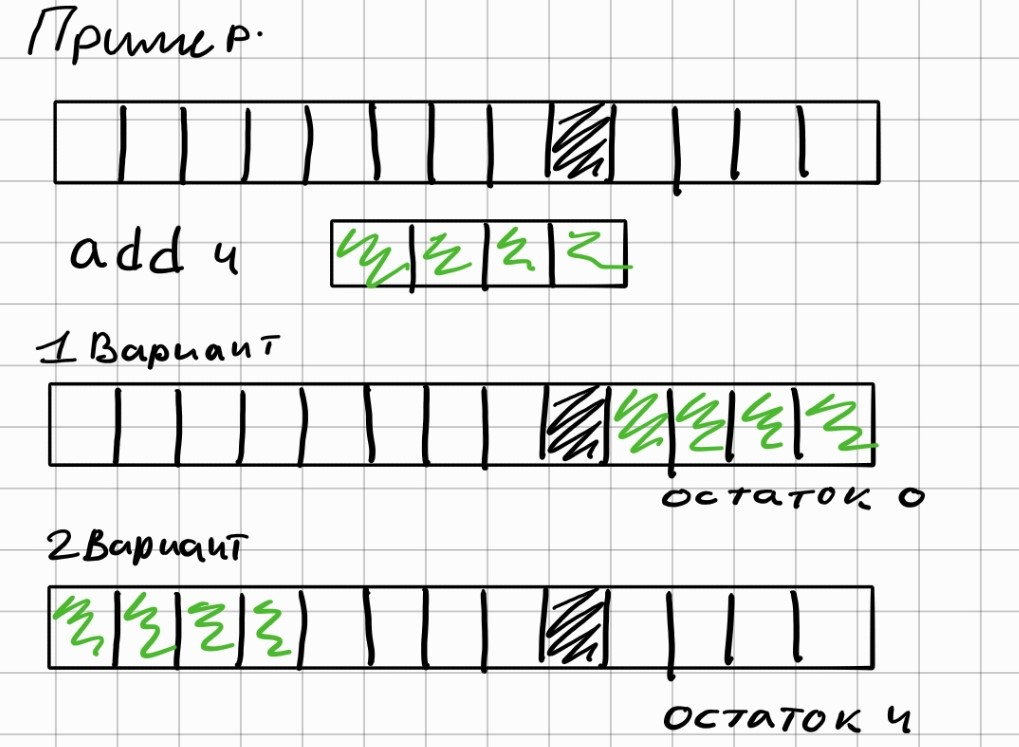 Пример.
add 4
1 Вариант
остаток 0
2 Вариант
остаток 4